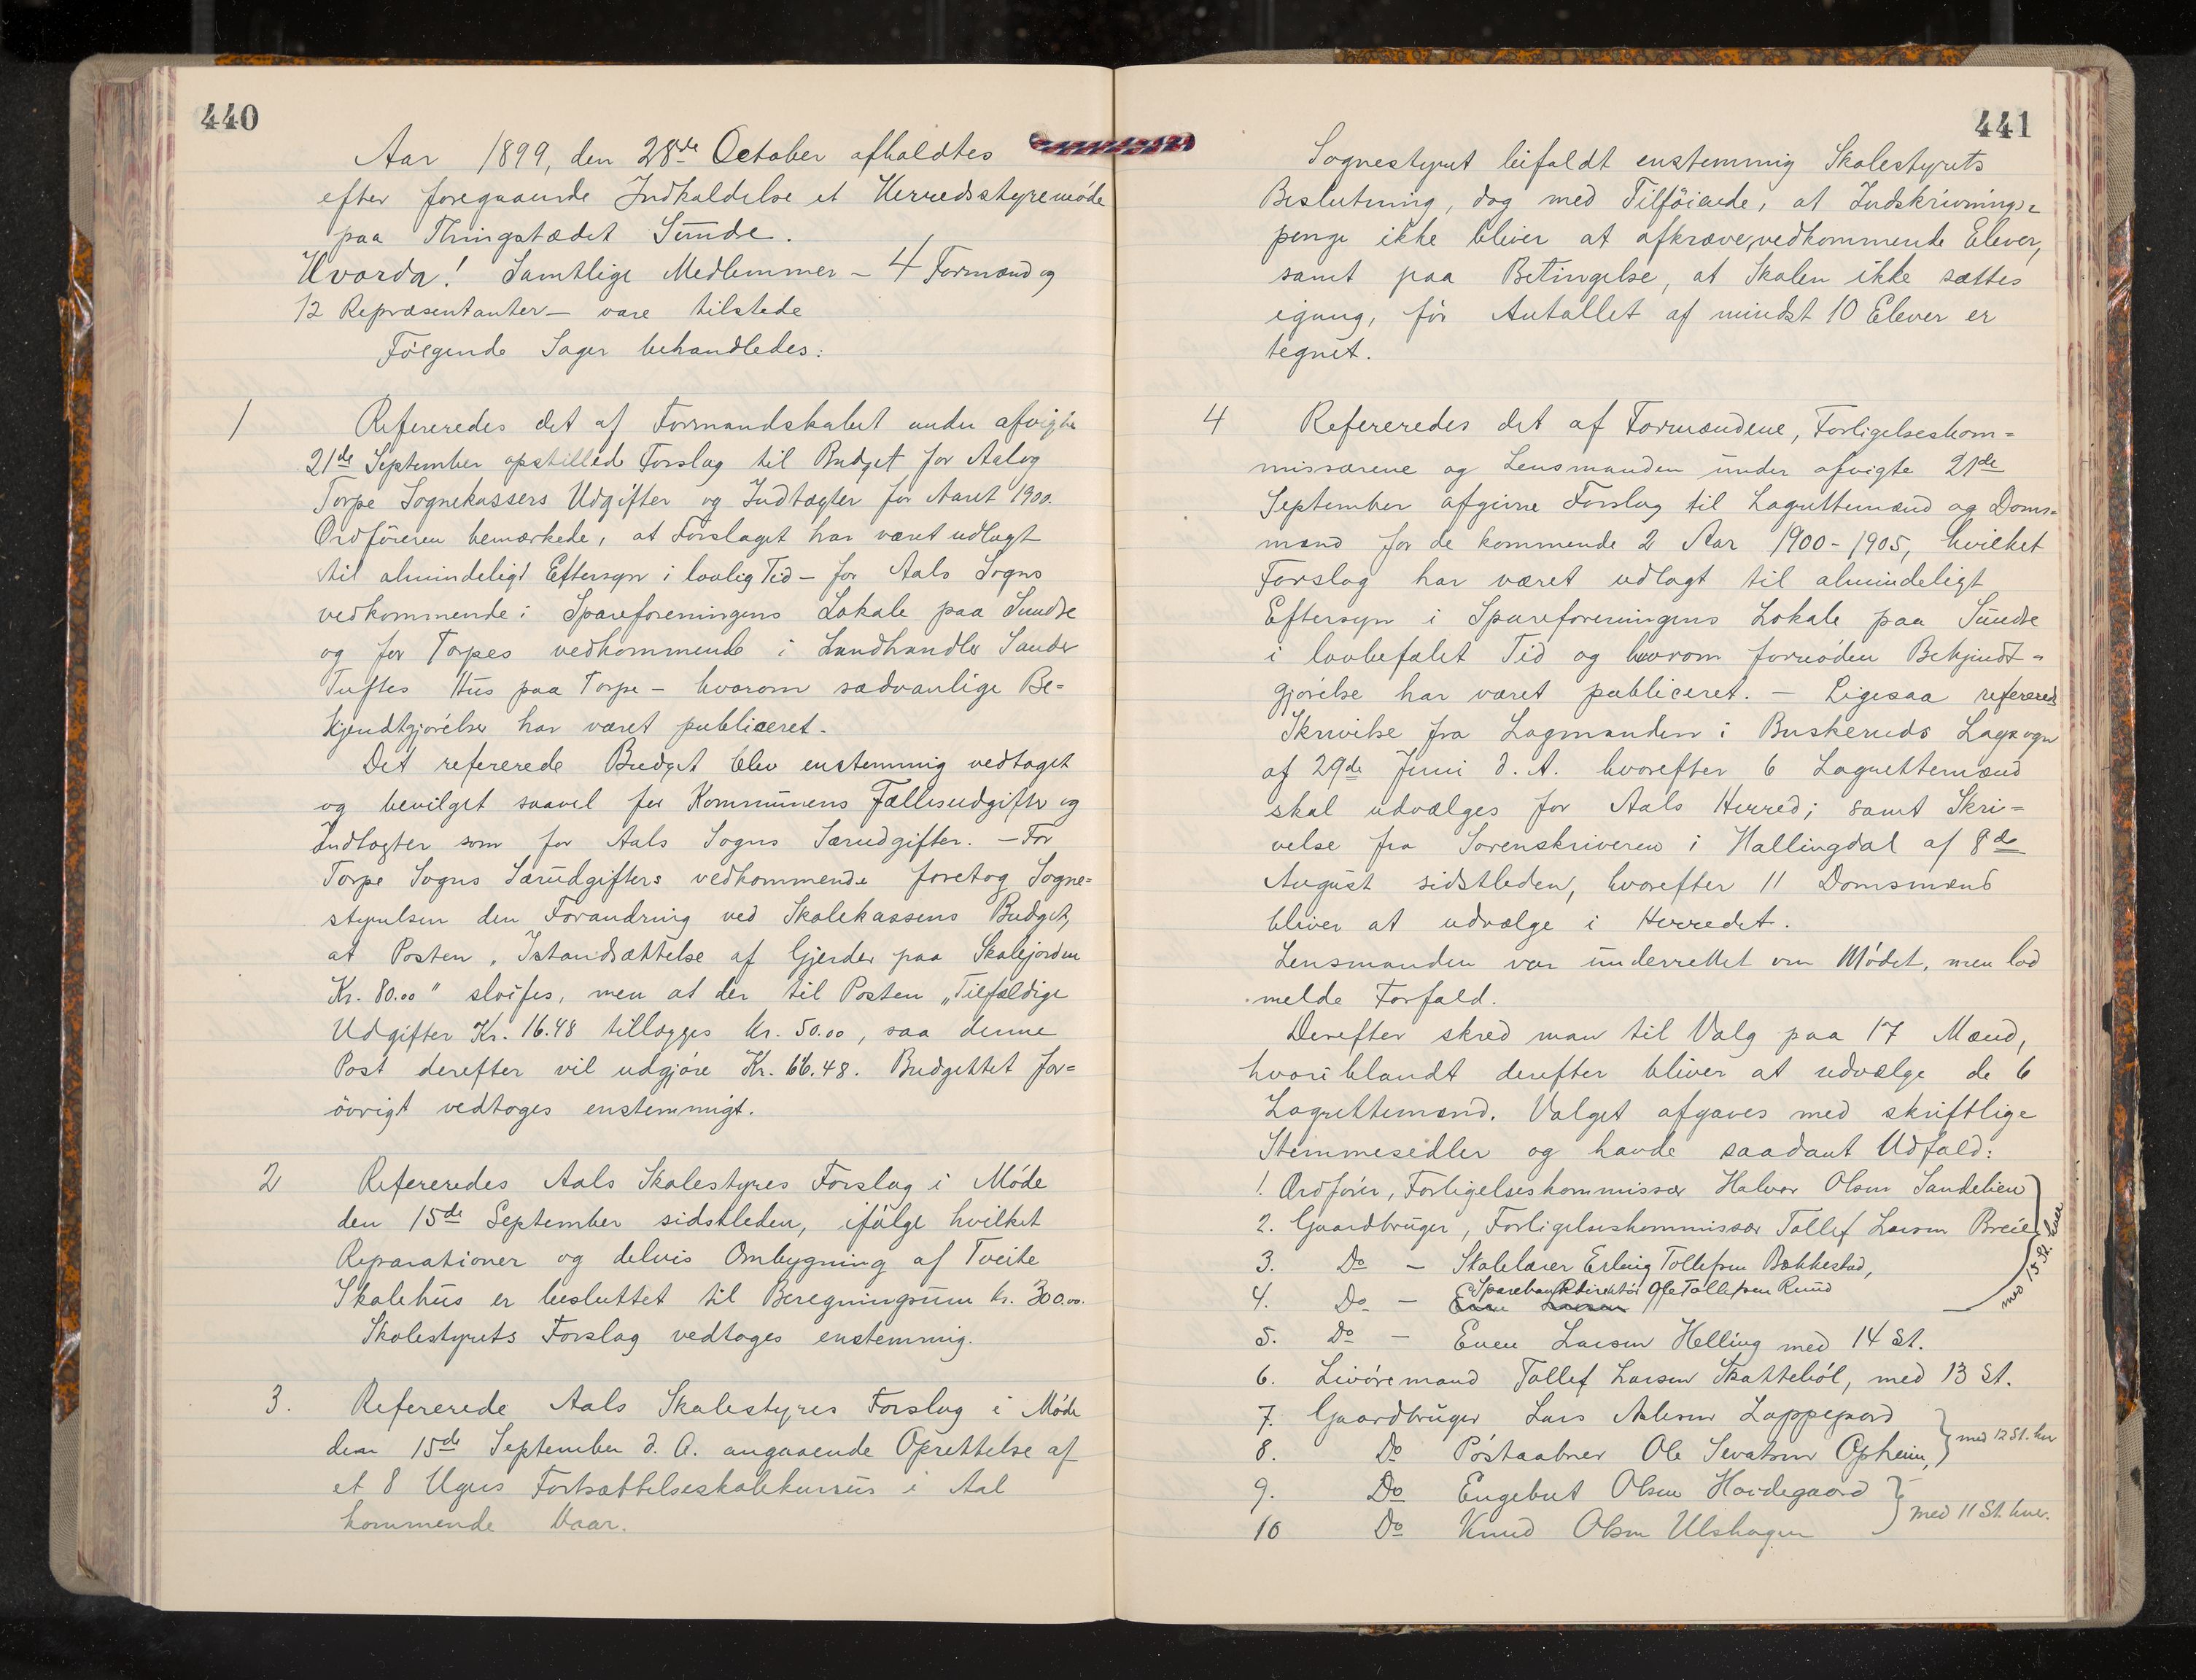 440
Aar 1899, den 28de October afholdtes
efter foregaaende Indkaldelse et Herredsstyremøde
paa Thingstædet Sunde.
Hvorda! Samtlige Medlemmer – 4 Formænd og
12 Repræsentanter – vare tilstede
Følgende Sager behandledes:
1 Refereredes det af Formandskabet under afvigte
21de September opstillede Forslag til Budget for Aal og
Torpe Sognekassers Udgifter og Indtægter for Aaret 1900.
Ordføreren bemærkede, at Forslaget har været udlagt
til almindeligt Eftersyn i lovlig Tid – for Aals Sogns
vedkommende i Spareforeningens Lokale paa Sundre
og for Torpes vedkommende i Landhandler Sander
Tuftes Hus paa Torpe – hvorom sædvanlige Be=
kjendtgjørelse har været publiceret.
Det refererede Budget blev enstemmig vedtaget
og bevilget saavel for Kommunens Fællesudgifter og
Indtægter som for Aals Sogns Særudgifter. – For
Torpe Sogns Særudgifters vedkommende foretog Sogne=
styrelsen den Forandring ved Skolekassens Budget,
at Posten „Istandsættelse af Gjerder paa Skolejorden
Kr. 80.00" sløifes, men at der til Posten „Tilfældige
Udgifter Kr. 16.48 tillægges Kr. 50.00, saa denne
Post derefter vil udgjøre Kr. 66.48. Budgettet for=
øvrigt vedtoges enstemmigt.
2 Refereredes Aals Skolestyres Forslag i Møde
den 15de September sidstleden, ifølge hvilket
Reparationer og delvis Ombygning af Tveite
Skolehus er besluttet til Beregningssum Kr. 300.00.
Skolestyrets Forslag vedtoges enstemmig.
3. Refererede Aals Skolestyres Forslag i Møde
den 15de September d. A. angaaende Oprettelse af
et 8 Ugers Fortsættelsesskolekursus i Aal
kommende Vaar.
441
Sognestyret bifaldt enstemmig Skolestyrets
Beslutning, dog med Tilføiende, at Indskrivnings=
penge ikke bliver at afkræve vedkommende Elever,
samt paa Betingelse, at Skolen ikke sættes
igang, før Antallet af mindst 10 Elever er
tegnet.
4 Refereredes det af Formændene, Forligelseskom=
missærene og Lensmanden under afvigte 21de
September afgivne Forslag til Lagrettemænd og Doms=
mænd for de kommende 2 Aar 1900-1905, hvilket
Forslag har været udlagt til almindeligt
Eftersyn i Spareforeningens Lokale paa Sundre
i lovbefalet Tid og hvorom fornøden Bekjendt=
gjørelse har været publiceret. – Ligesaa refereredes
Skrivelse fra Lagmanden i Buskeruds Lagsogn
af 29de Juni d. A. hvorefter 6 Lagrettemænd
skal udvælges for Aals Herred; samt Skri=
velse fra Sorenskriveren i Hallingdal af 8de
August sidstleden, hvorefter 11 Domsmænd
bliver at udvælge i Herredet.
Lensmanden var underrettet om Mødet, men lod
melde Forfald.
Derefter skred man til Valg paa 17 Mænd,
hvoriblandt derefter bliver at udvælge de 6
Lagrettemænd. Valget afgaves med skriftlige
Stemmesedler og havde saadant Udfald:
1. Ordfører, Forligelseskommissær Halvor Olsen Sandelien
2. Gaardbruger, Forligelseskommissær Tollef Larsen Breie
3. Do – Skolelærer Erling Tollefsen Bakkestad,
4. Do – Sparebankdirektør Ole Tollefsen Ruud
med 15 St. hver
5. Do – Even Larsen Helling med 14 St.
6. Livøremand Tollef Larsen Skattebøl, med 13 St.
7. Gaardbruger Lars Lappegard
8. Do Postaabner Ole Sevatsen Opheim, } med 12 St. hver
9. Do Engebret Olsen Hovdegaard
10 Do Knud Olsen Ulshagen } med 11 St. hver.